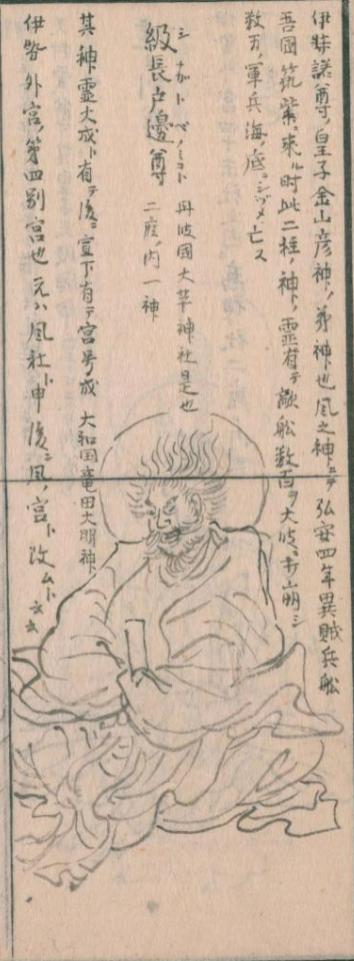 伊弉諾尊ノ皇子金山彦神ノ弟神也風之神ニテ弘安四年異賊兵船
吾国筑紫ニ来ル時此二柱ノ神ノ霊有テ敵船数百ヲ大波ニ打崩シ
数万ノ軍兵海ノ底ニシヅメ亡ス
シナガトベノミコト
級長戸邊尊
丹波国大芋神社是也
二座ノ内一神
其神霊大成ト有テ後ニ宣下有テ宮号成 大和国竜田大明神ト
伊勢外宮ノ第四別宮也元ハ風社ト申後ニ風ノ宮ト改ムト云云